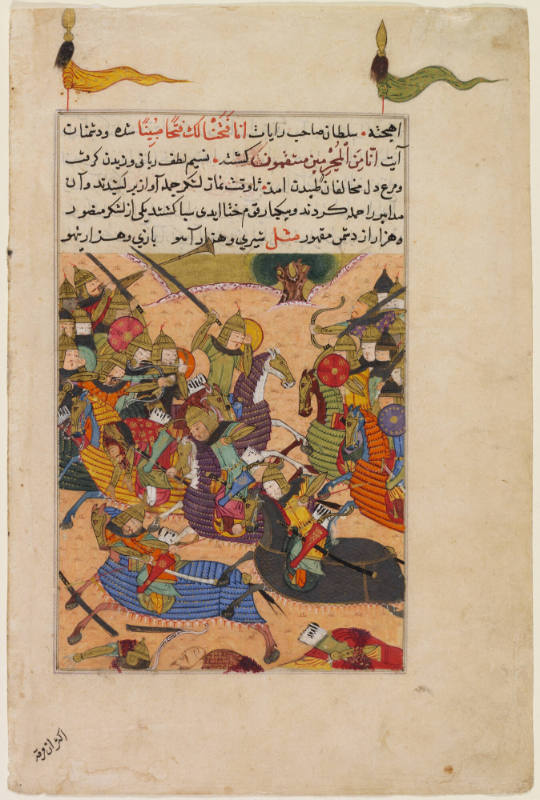 اهیخته • سلطان صاحب رایات انا فتحنا لك فتحا مبینا شده و دشمنان
آیت انا من المجرمین منتقمون کشتند • نسیم لطف ربانی وزیدن کرفت
و مرغ دل مخالفان طپیدن آمد • تا وقت نماز لشکر جمله آواز بر کشیدند و آن
مدابیر را حمله کردند و بیکبار رقوم ختا ایدی سبا کشتند یکی از لشکر منصور
و هزار از دشمن مقهور مثل شیری و هزار آهو بازی و هزار تیهو